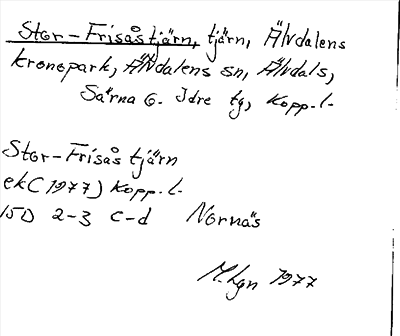 Stor-Frisåstjärn, tjärn, Älvdalens
kronopark, Älvdalens sn, Älvdals,
Särna o. Idre tg, Kopp. l.
Stor-Frisåstjärn
ek (1977) Kopp. l.
15D 2-3 c-d Nornäs
M. Lgn 1977